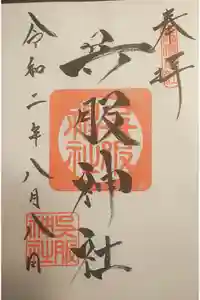 奉拝
呉服神社
令和二年八月八日
呉服
神社